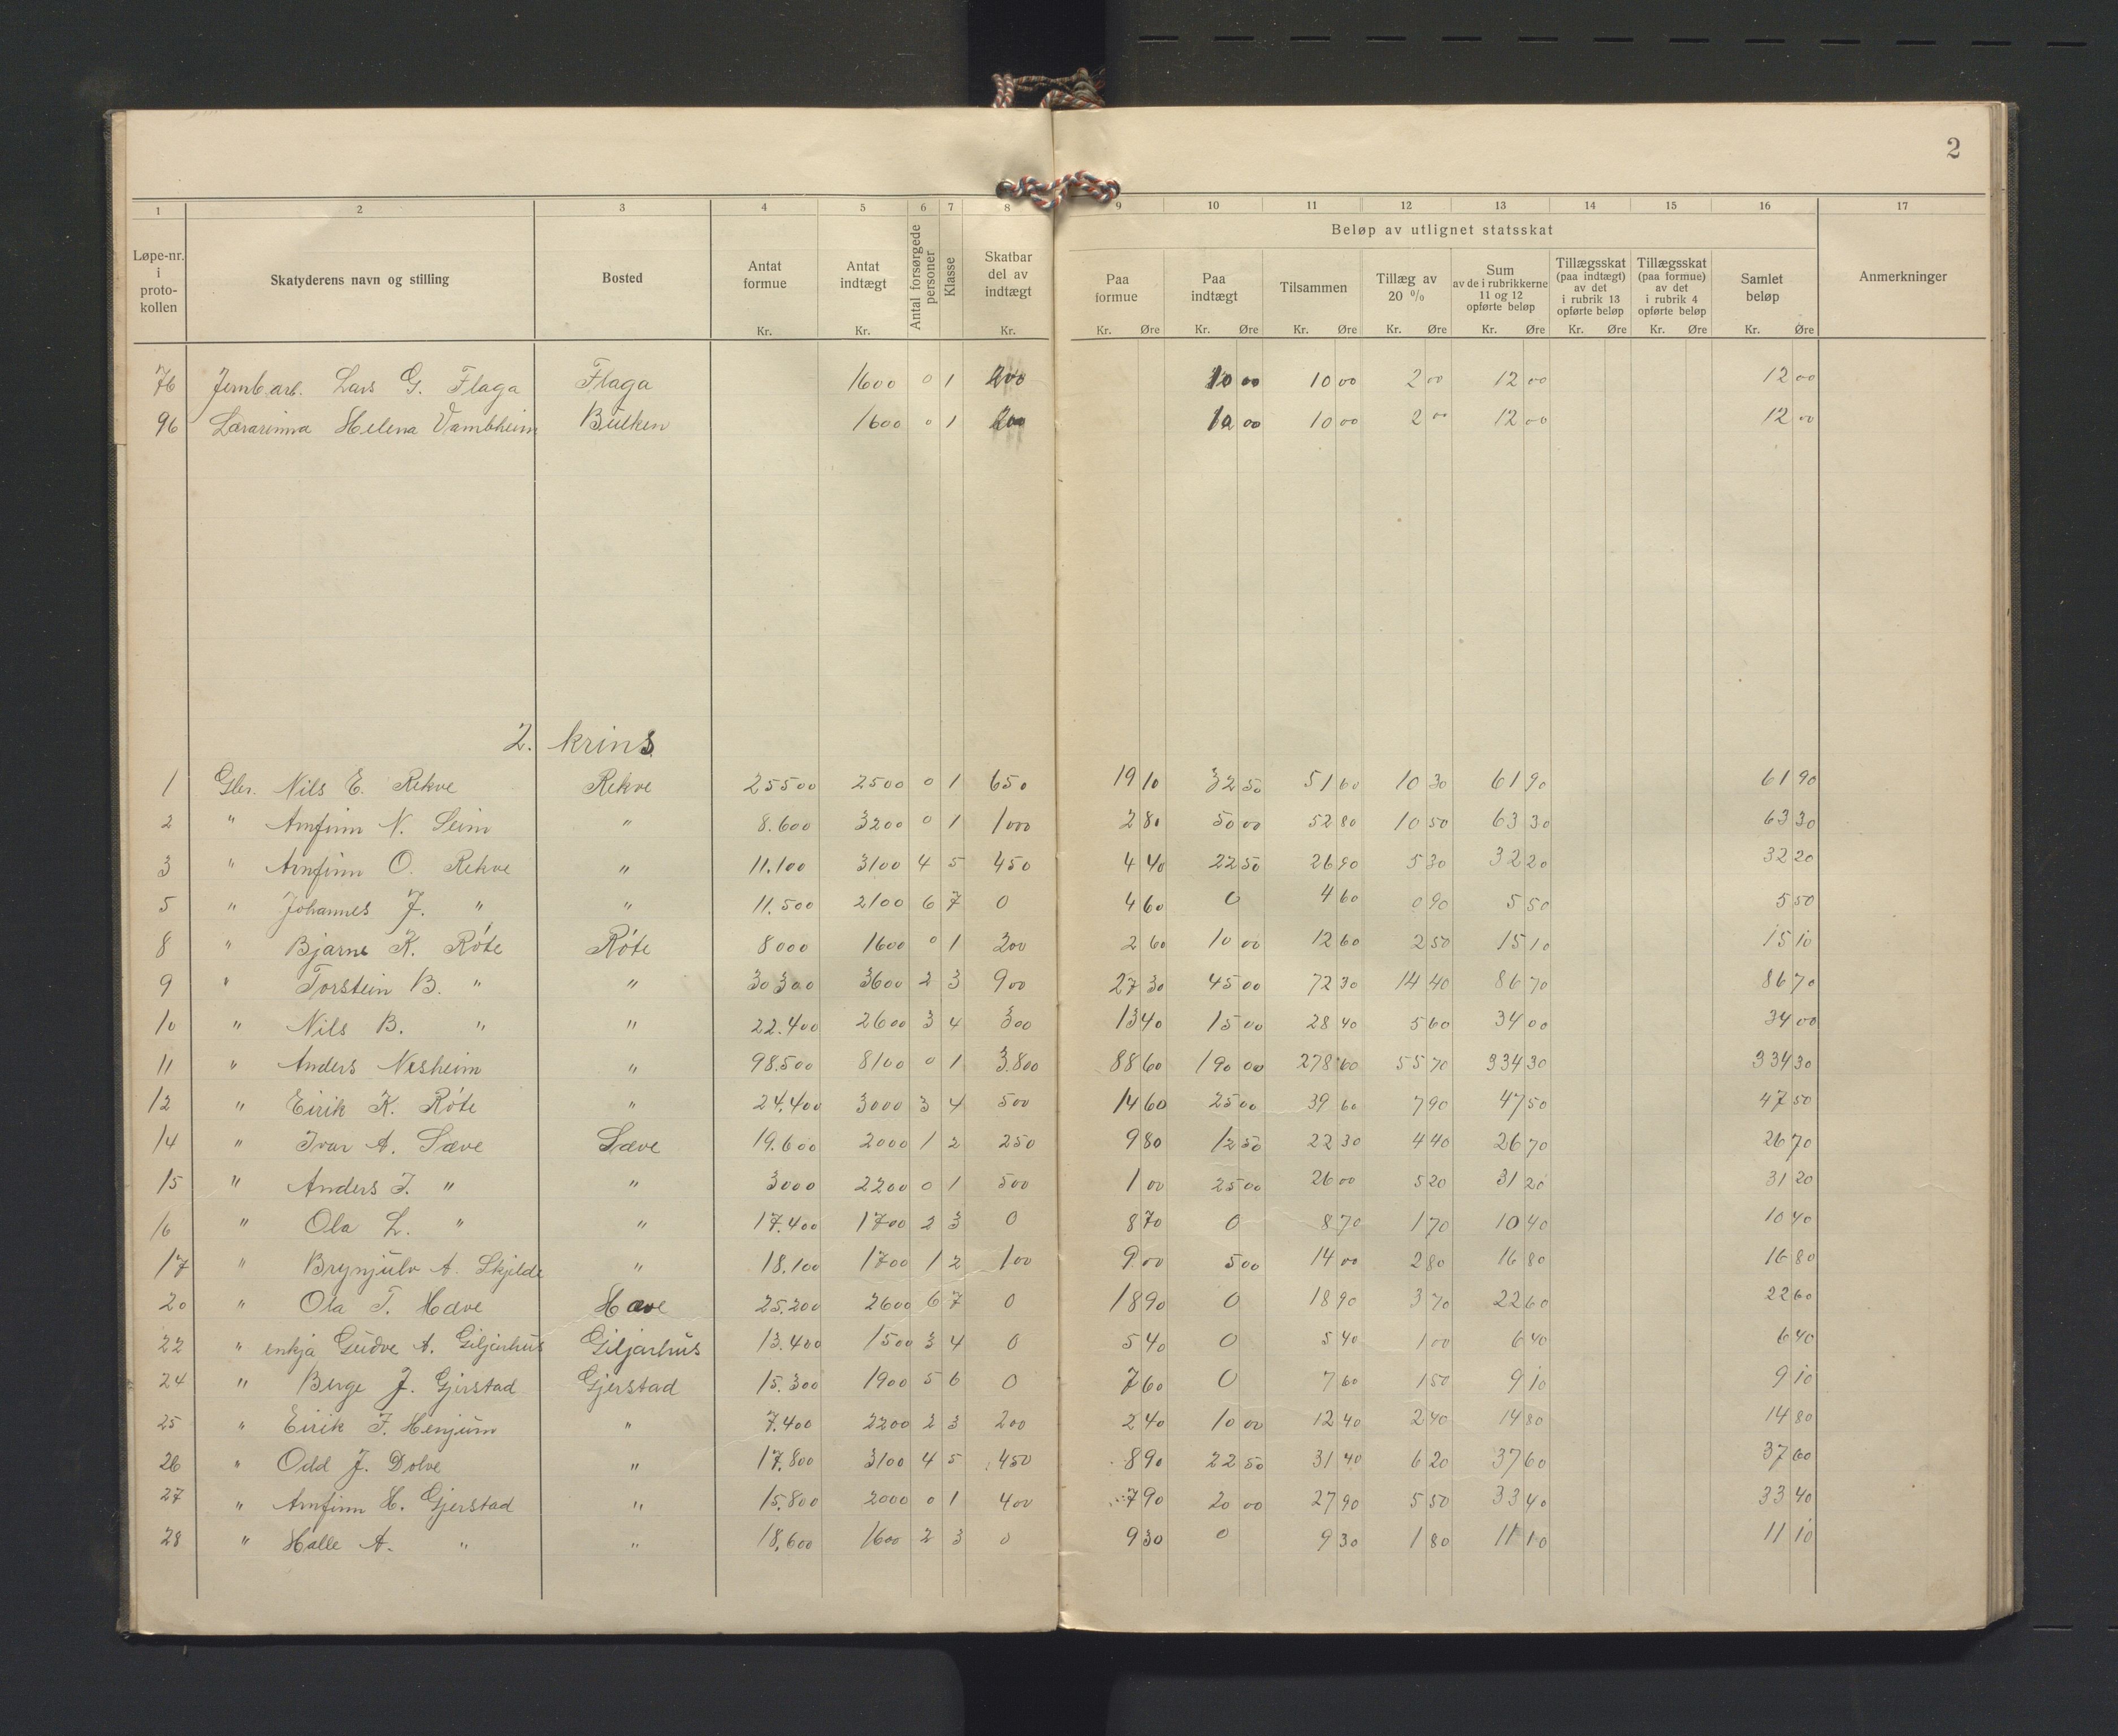 2
1 2 3 4 5 6 7 8 9 10 11 12 13 14 15 16 17
Beløp av utlignet statsskat
Løpe-nr. i proto-kollen Skatyderens navn og stilling Bosted Antat formue Kr. Antat indtægt Kr. Antal forsørgede personer Klasse Skatbar del av indtægt Kr. Paa formue Kr. Øre Paa indtægt Kr. Øre Tilsammen Kr. Øre Tillæg av 20 % Kr. Øre Sum av de i rubrikkerne 11 og 12 opførte beløp Kr. Øre Tillægsskat (paa indtægt) av det i rubrik 13 opførte beløp Kr. Øre Tillægsskat (paa formue) av det i rubrik 4 opførte beløp Kr. Øre Samlet beløp Kr. Øre Anmerkninger
76 Jernb.arb. Lars G. Flaga Flaga 1600 0 1 200 10 00 10 00 2 00 12 00 12 00
96 Lærarinna Helena Vambheim Bulken 1600 0 1 200 10 00 10 00 2 00 12 00 12 00
2. krins
1 Gbr. Nils E. Rekve Rekve 25500 2500 0 1 650 19 10 32 50 51 60 10 30 61 90 61 90
2 " Arnfinn N. Seim " 8.600 3200 0 1 1000 2 80 50 00 52 80 10 50 63 30 63 30
3 " Arnfinn O. Rekve " 11.100 3100 4 5 450 4 40 22 50 26 90 5 30 32 20 32 20
5 " Johannes J. " " 11.500 2100 6 7 0 4 60 0 4 60 0 90 5 50 5 50
8 " Bjarne K. Røte Røte 8000 1600 0 1 200 2 60 10 00 12 60 2 50 15 10 15 10
9 " Torstein B. " " 30300 3600 2 3 900 27 30 45 00 72 30 14 40 86 70 86 70
10 " Nils B. " " 22.400 2600 3 4 300 13 40 15 00 28 40 5 60 34 00 34 00
11 " Anders Nesheim " 98.500 8100 0 1 3.800 88 60 190 00 278 60 55 70 334 30 334 30
12 " Eirik K. Røte " 24.400 3000 3 4 500 14 60 25 00 39 60 7 90 47 50 47 50
14 " Ivar A. Sæve Sæve 19.600 2000 1 2 250 9 80 12 50 22 30 4 40 26 70 26 70
15 " Anders I. " " 3000 2200 0 1 500 1 00 25 00 26 00 5 20 31 20 31 20
16 " Ola L. " " 17.400 1700 2 3 0 8 70 0 8 70 1 70 10 40 10 40
17 " Brynjulv A. Skjelde " 18.100 1700 1 2 100 9 00 5 00 14 00 2 80 16 80 16 80
20 " Ola T. Hæve Hæve 25.200 2600 6 7 0 18 90 0 18 90 3 70 22 60 22 60
22 " enkja Gudve A. Giljarhus Giljarhus 13.400 1500 3 4 0 5 40 0 5 40 1 00 6 40 6 40
24 " Berge J. Gjerstad Gjerstad 15.300 1900 5 6 0 7 60 0 7 60 1 50 9 10 9 10
25 " Eirik J. Henjum " 7.400 2200 2 3 200 2 40 10 00 12 40 2 40 14 80 14 80
26 " Odd J. Dolve " 17.800 3100 4 5 450 8 90 22 50 31 40 6 20 37 60 37 60
27 " Arnfinn H. Gjerstad " 15.800 2000 0 1 400 7 90 20 00 27 90 5 50 33 40 33 40
28 " Halle A. " " 18.600 1600 2 3 0 9 30 0 9 30 1 80 11 10 11 10